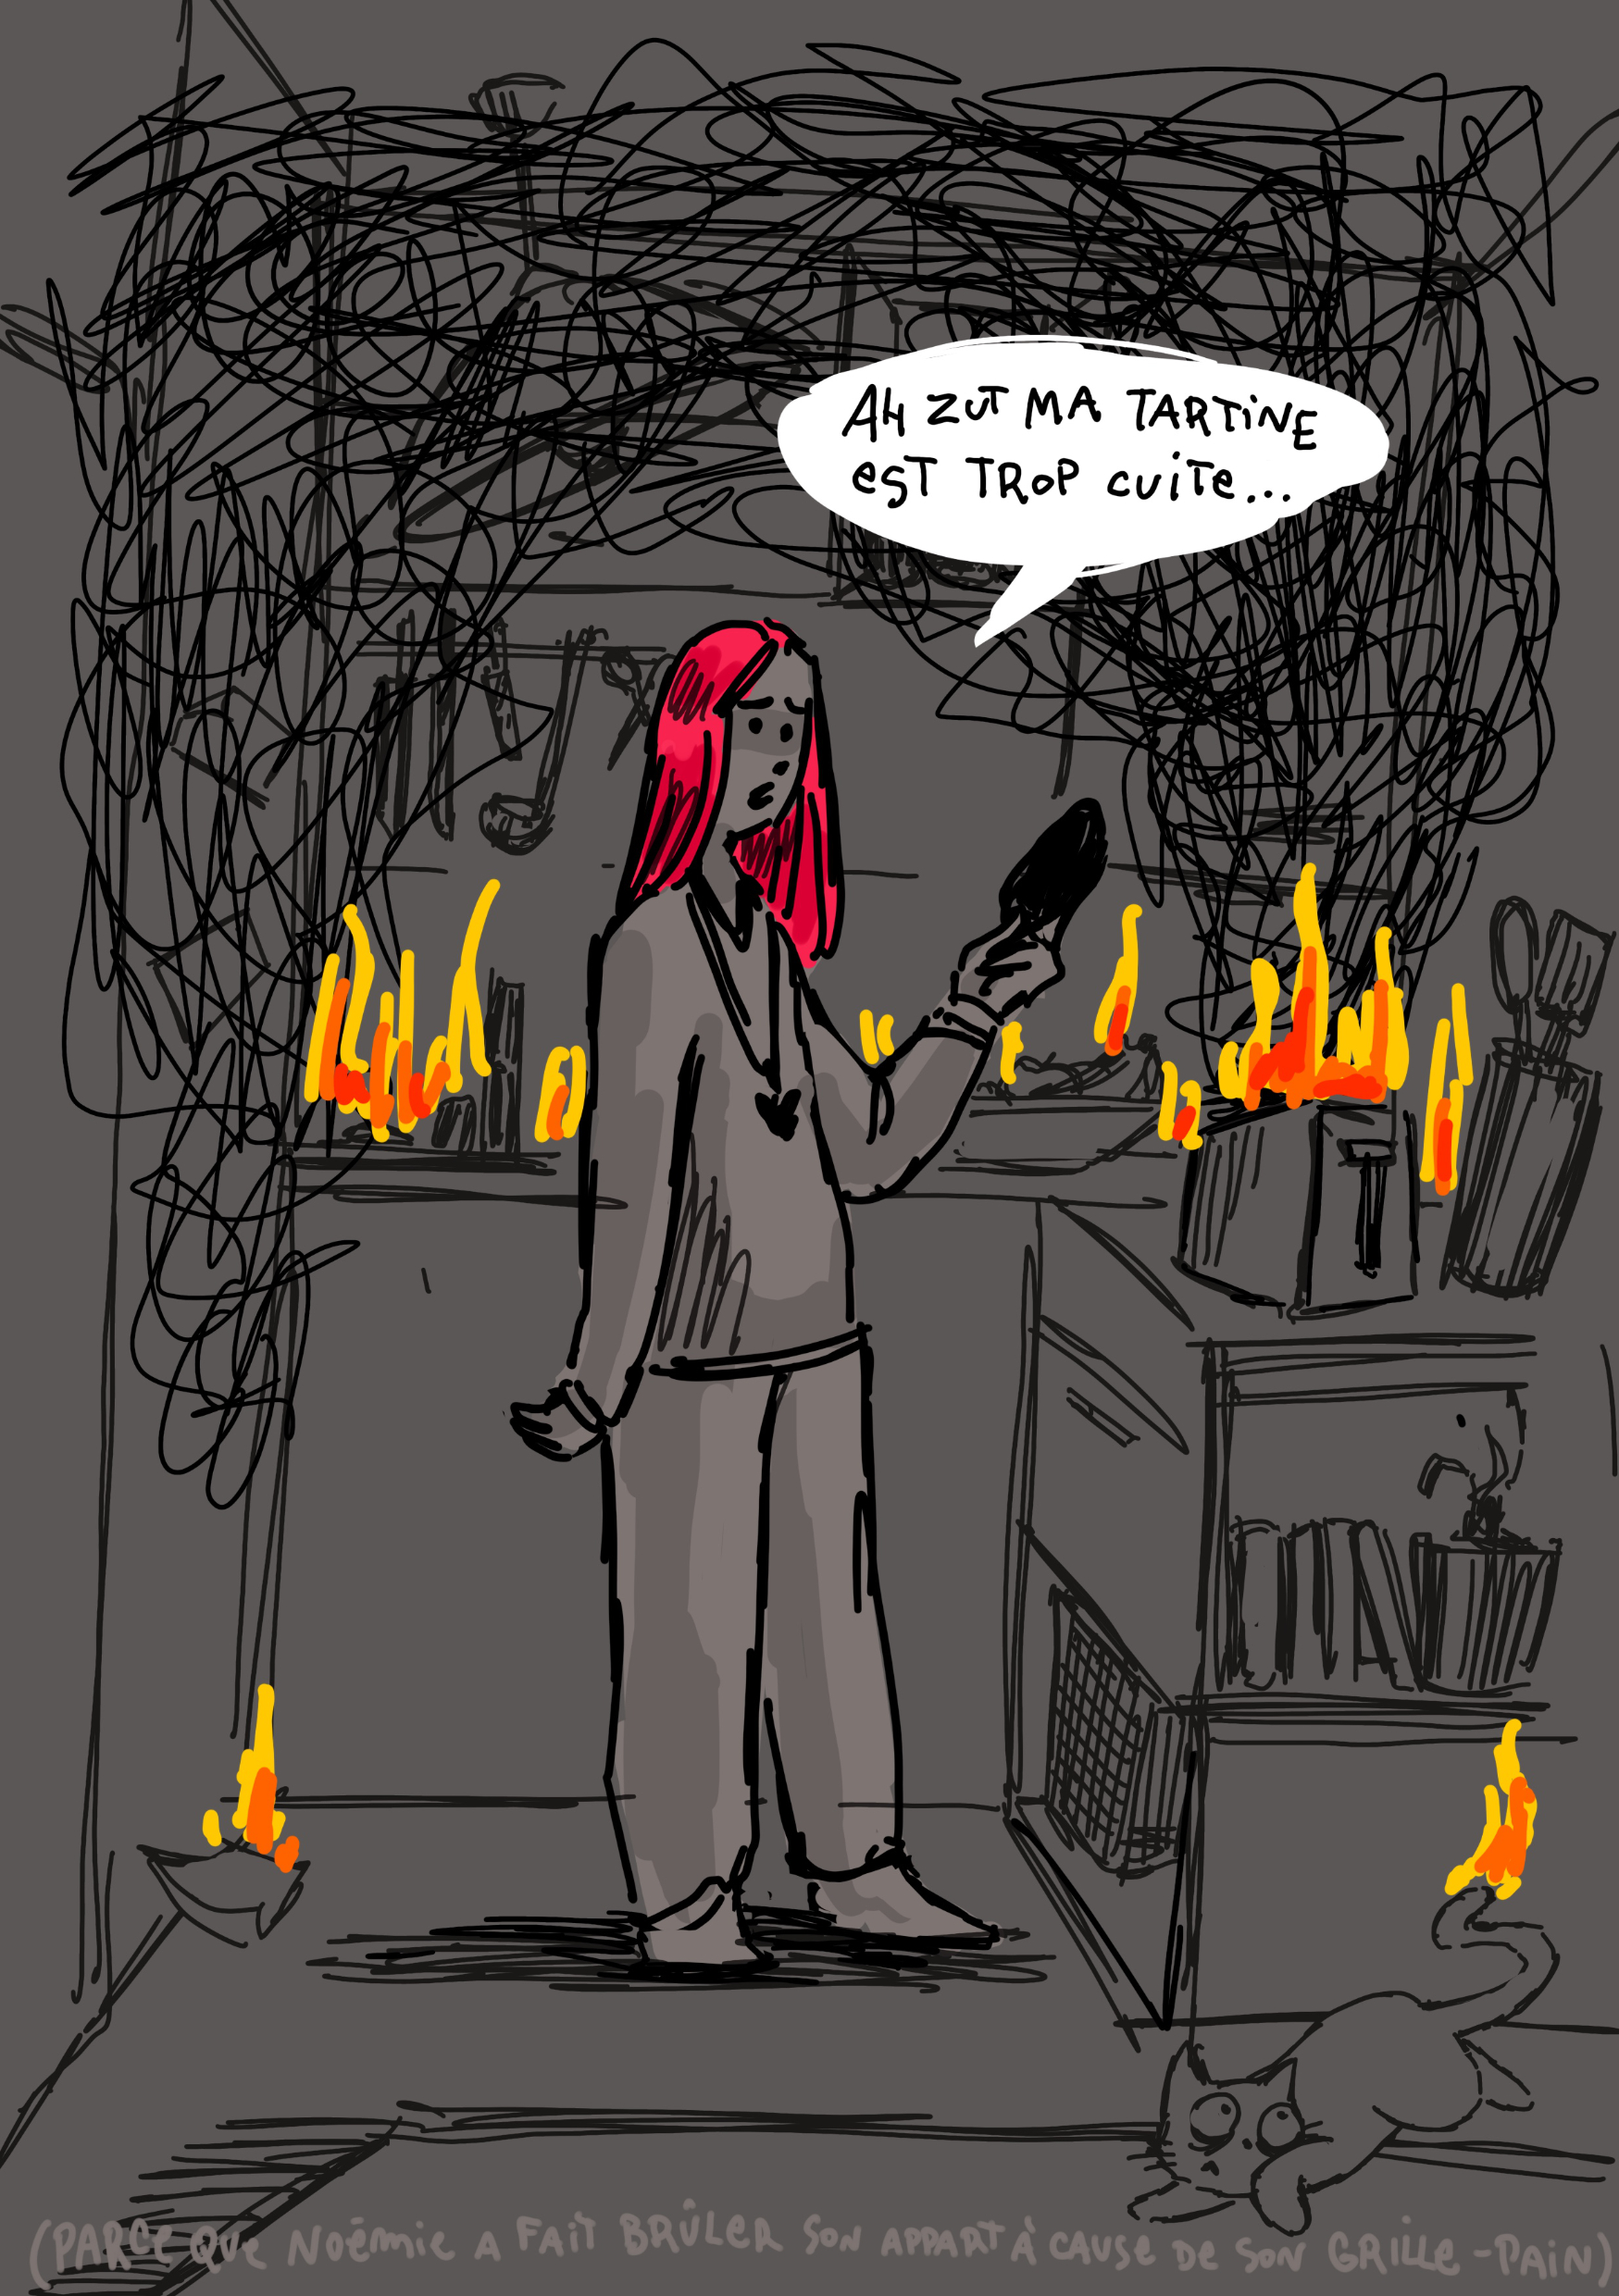 AH ZUT MA TARTINE
EST TROP CUITE...
(PARCE QUE NOÉMIE A FAIT BRÛLER SON APPART À CAUSE DE SON GRILLE-PAIN)